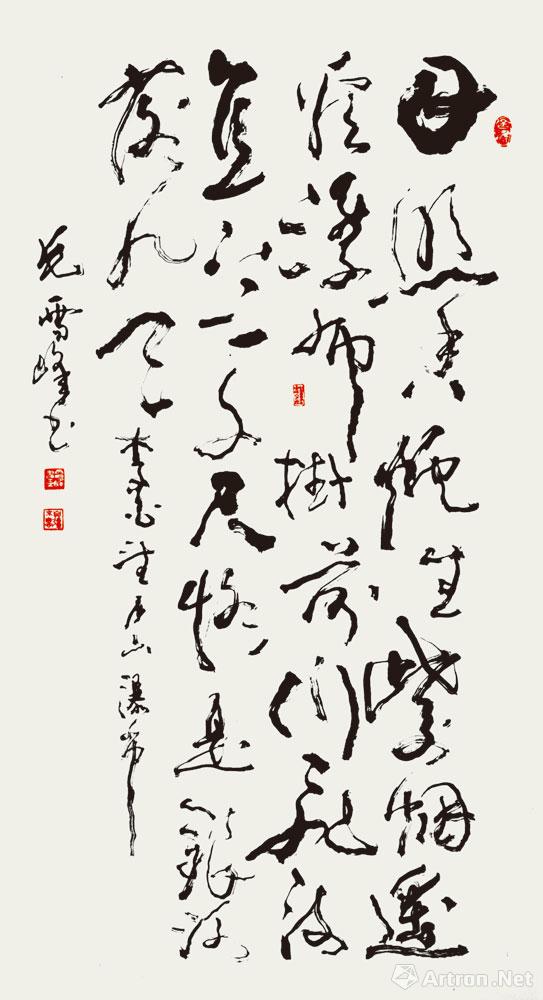 日照香炉生紫烟遥
看瀑布掛前川飛流
直下三千尺疑是銀河
落九天 李白望庐山瀑布
雪峰书
Artron.Net